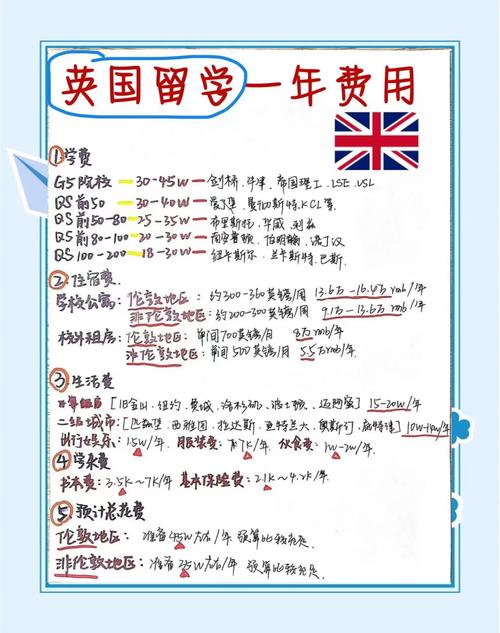 英国留学一年费用
①学费
G5院校 — 30-45w — 剑桥、牛津、帝国理工、LSE、USL
QS前50 — 30-40w — 爱丁堡、曼彻斯特、KCL等
QS前50-80 — 25-35w — 布里斯托、华威、利兹
QS前80-100 — 20-30w — 南安普顿、伯明翰、诺丁汉
QS100-200 — 18-30w — 纽卡斯尔、兰卡斯特、巴斯
②住宿费
学校公寓：伦敦地区：约300-360英镑/周 13.6万-16.4万rmb/年
非伦敦地区：约200-300英镑/周 9.1万-13.6万rmb/年
校外租房：伦敦地区：单间700英镑/月 8万rmb/年
非伦敦地区：单间500英镑/月 5.5万rmb/年
③生活费
[旧金山、纽约、费城、洛杉矶、波士顿、迈阿密] 15-20w/年
二级城市：[匹兹堡、西雅图、拉达斯、亚特兰大、奥斯汀、底特律] 10w-14w/年
出行娱乐：1.5w/年 服装费：7k/年 伙食费：1w-2w/年
④学杂费
书本费：3.5k~7k/年 基本保险费：2.1k~4.2k/年
⑤预计总花费
伦敦地区：准备45w左右/年 预算比较充足
非伦敦地区：准备25w左右/年 预算比较充足